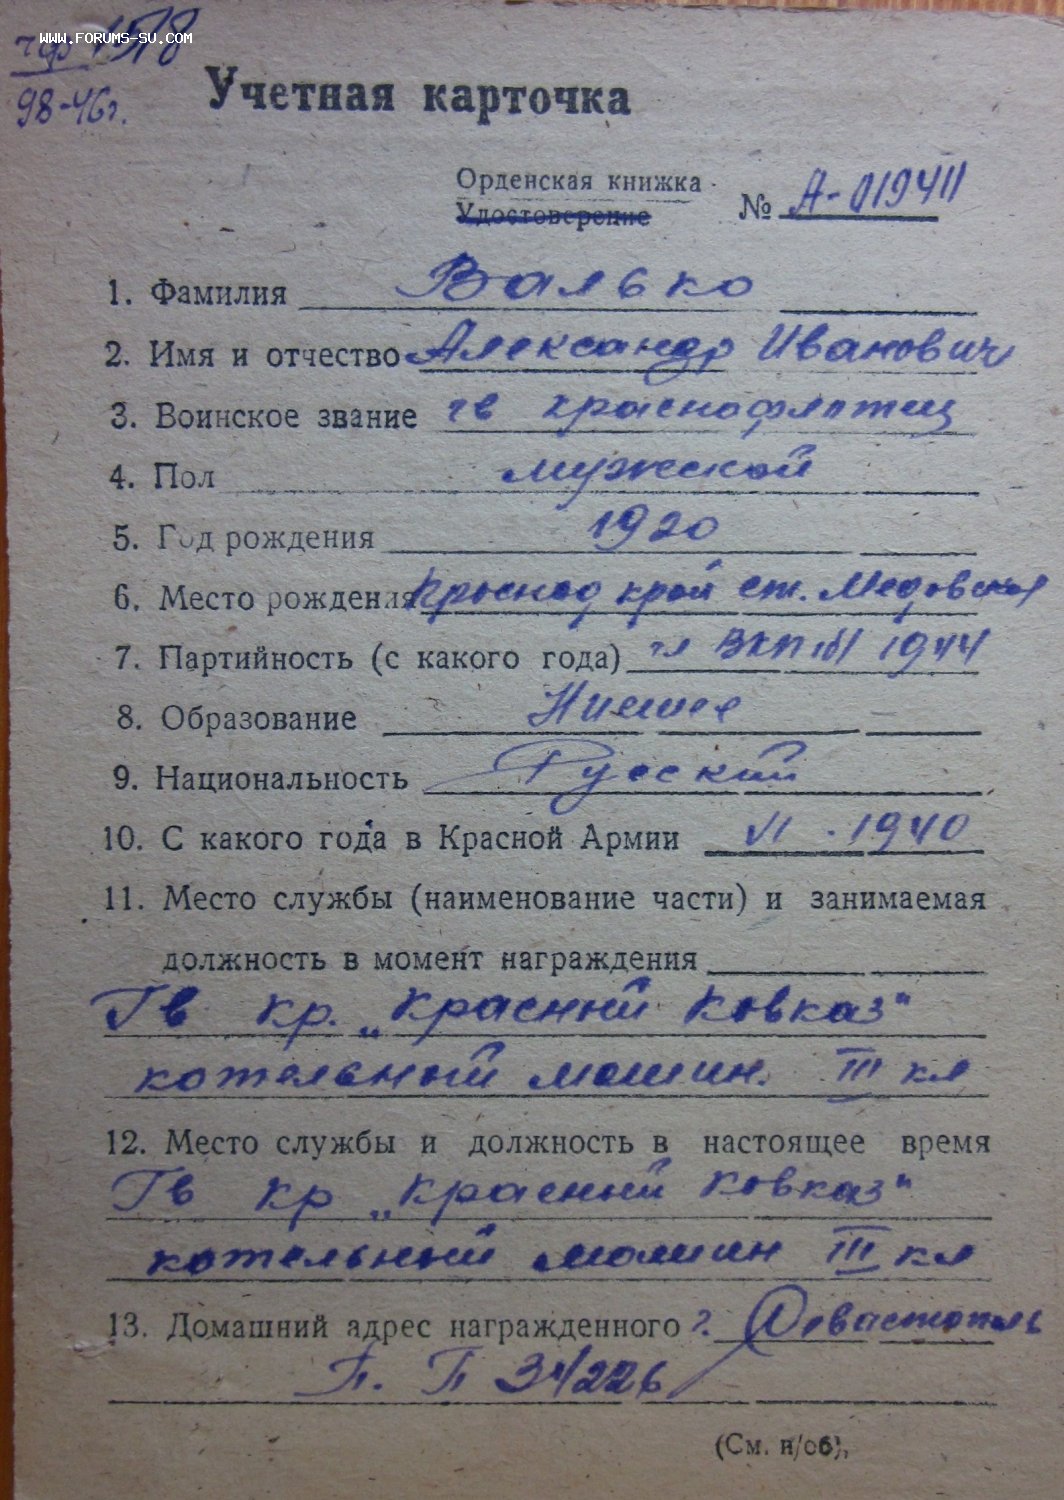 www.forums-su.com
чф 1578
98-46г.
Учетная карточка
Орденская книжка
Удостоверение
№ А-019411
1. Фамилия Валько
2. Имя и отчество Александр Иванович
3. Воинское звание гв краснофлотец
4. Пол мужской
5. Год рождения 1920
6. Место рождения Краснод край ст. Медовская
7. Партийность (с какого года) чл ВКП(б) 1944
8. Образование Низшее
9. Национальность Русский
10. С какого года в Красной Армии VI - 1940
11. Место службы (наименование части) и занимаемая
должность в момент награждения
Гв кр. „Красный Кавказ"
котельный машин. III кл
12. Место службы и должность в настоящее время
Гв кр „Красный Кавказ"
котельный машин III кл
13. Домашний адрес награжденного г. Севастополь
П. П 34/226
(См. н/об).